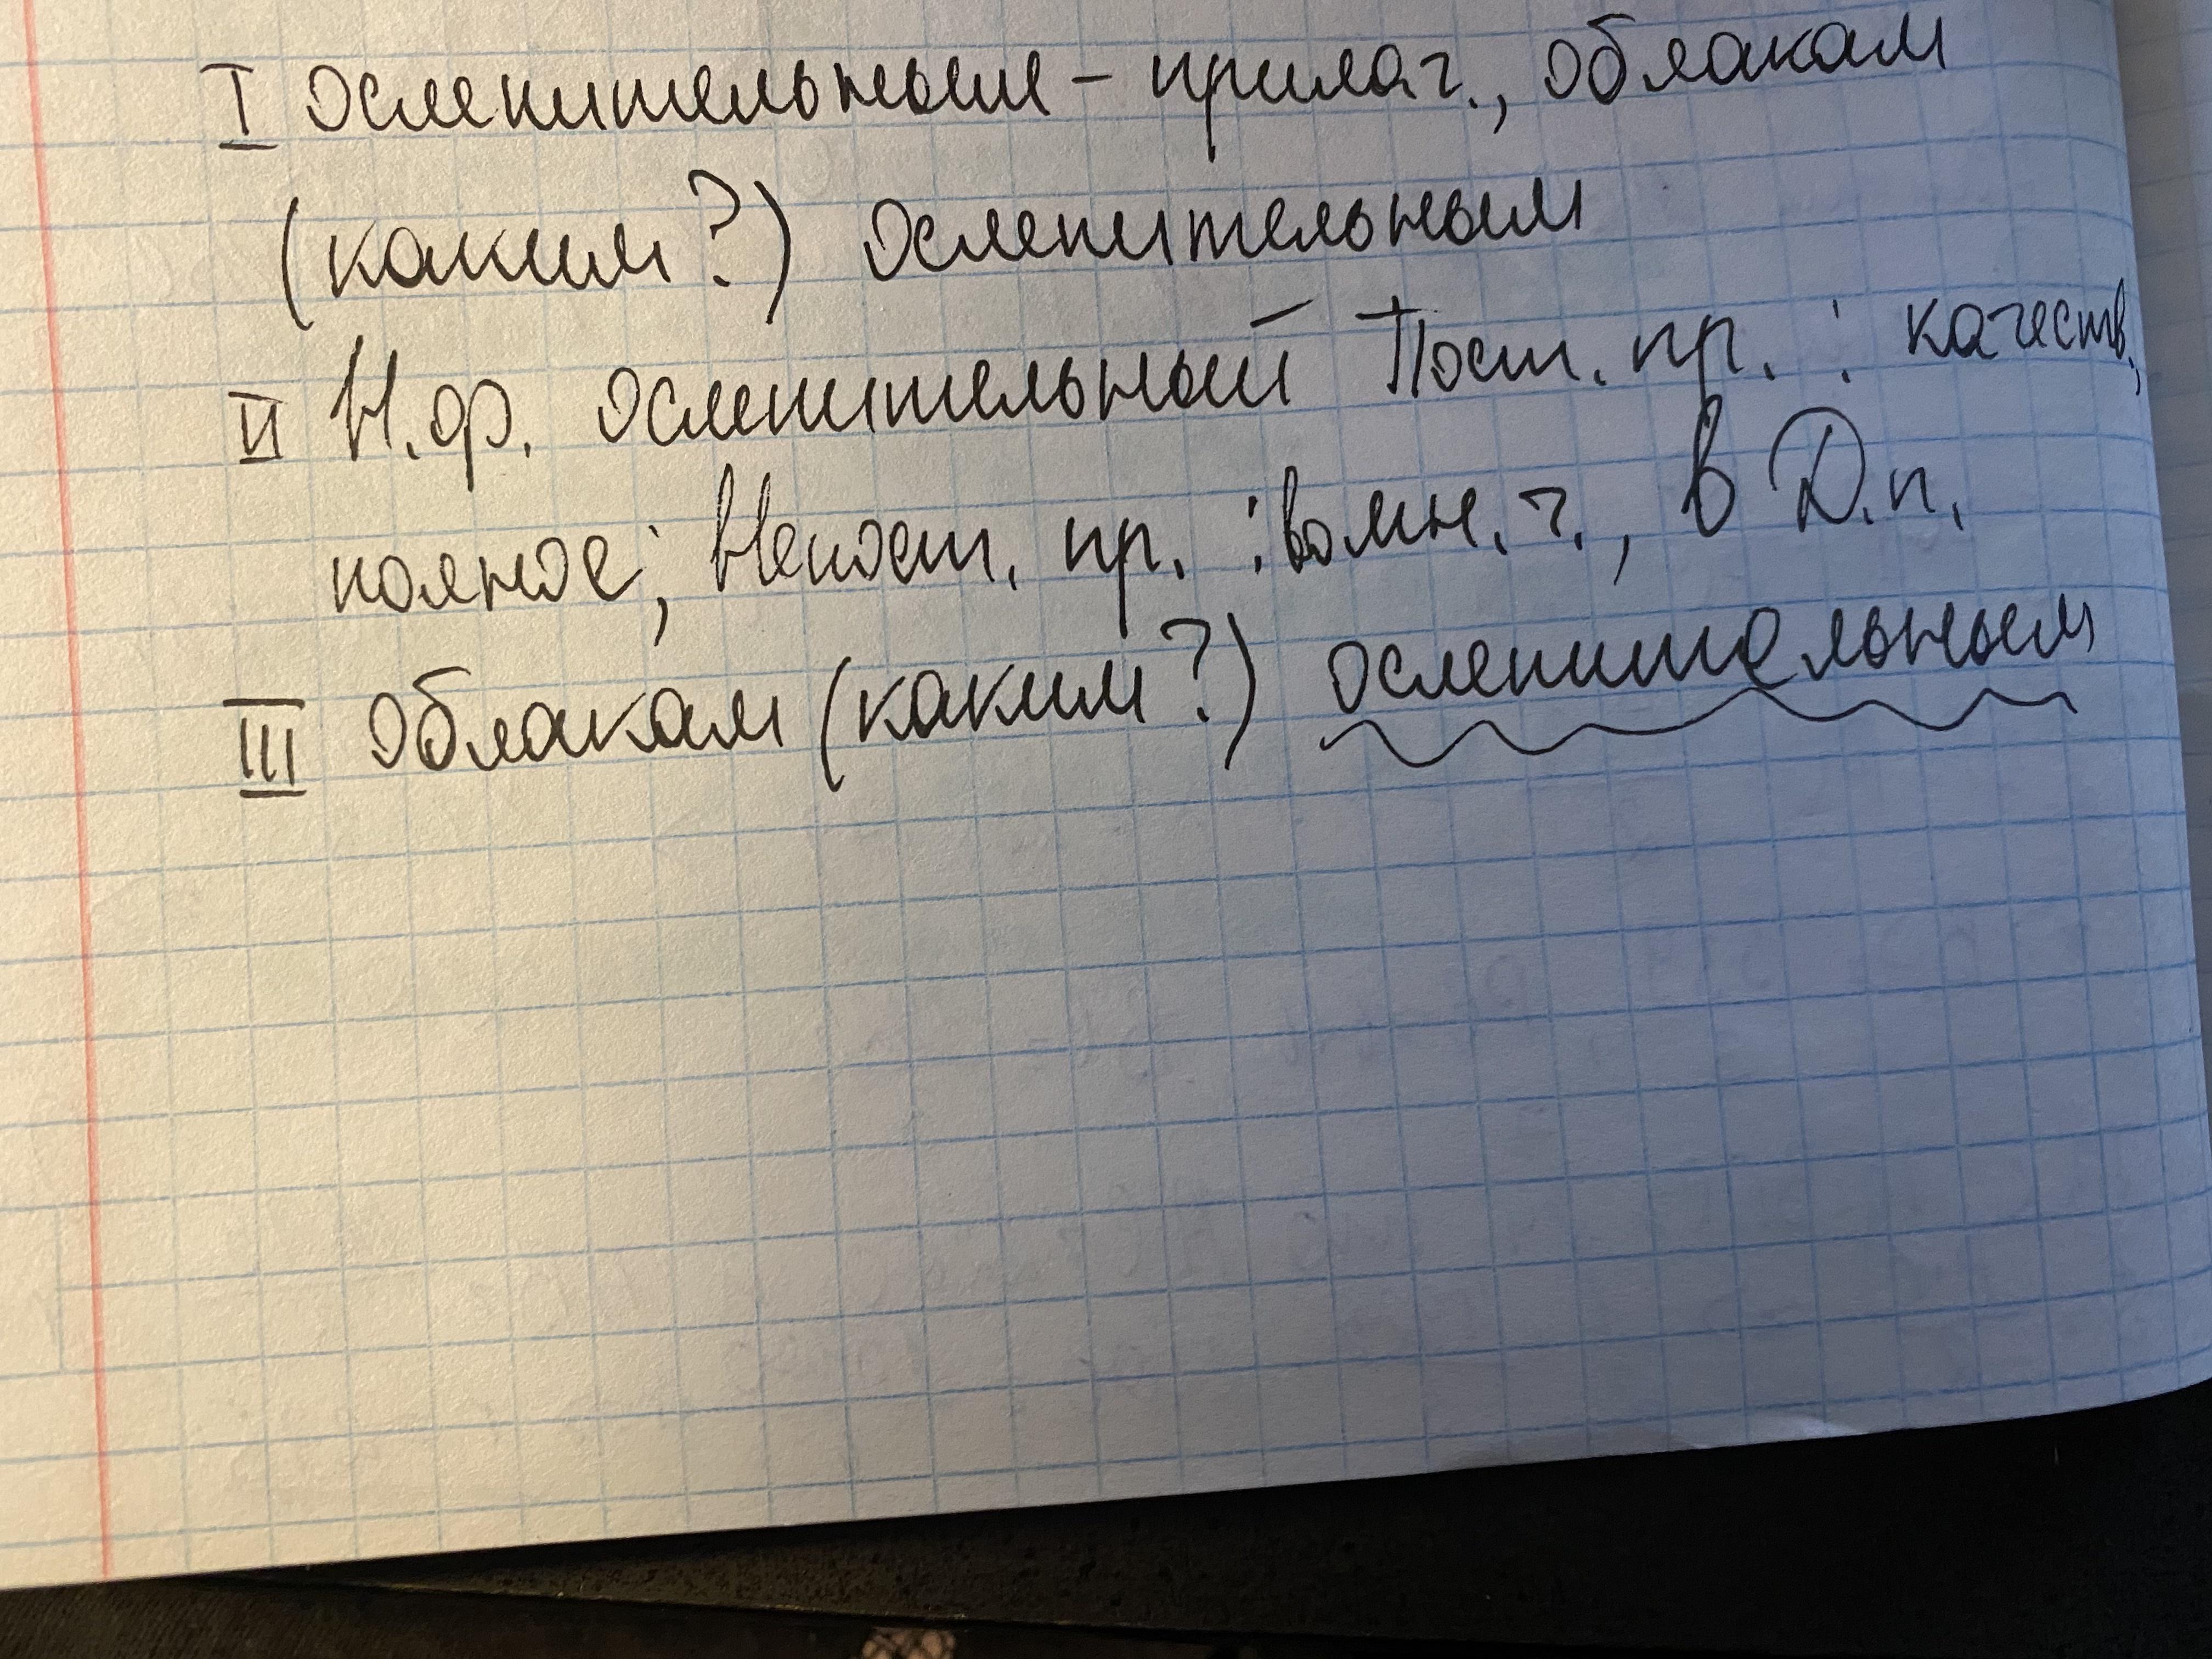 I Ослепительным – прилаг., облакам
(каким?) ослепительным
II Н.ф. ослепительный Пост. пр. : качеств.,
полное; Непост. пр. : во мн. ч., в Д.п.
III Облакам (каким?) ослепительным